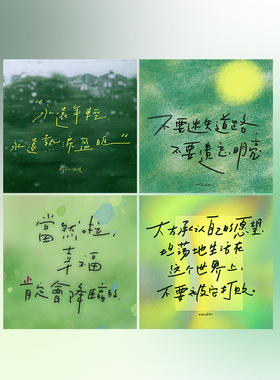 “永遠年輕，
永遠熱淚盈眶”
不要迷失道路
不要遗忘明亮
當然啦，
幸福
肯定會降臨的
大方承认自己的愿望
坦荡地生活在
这个世界上，
不要被它打败。